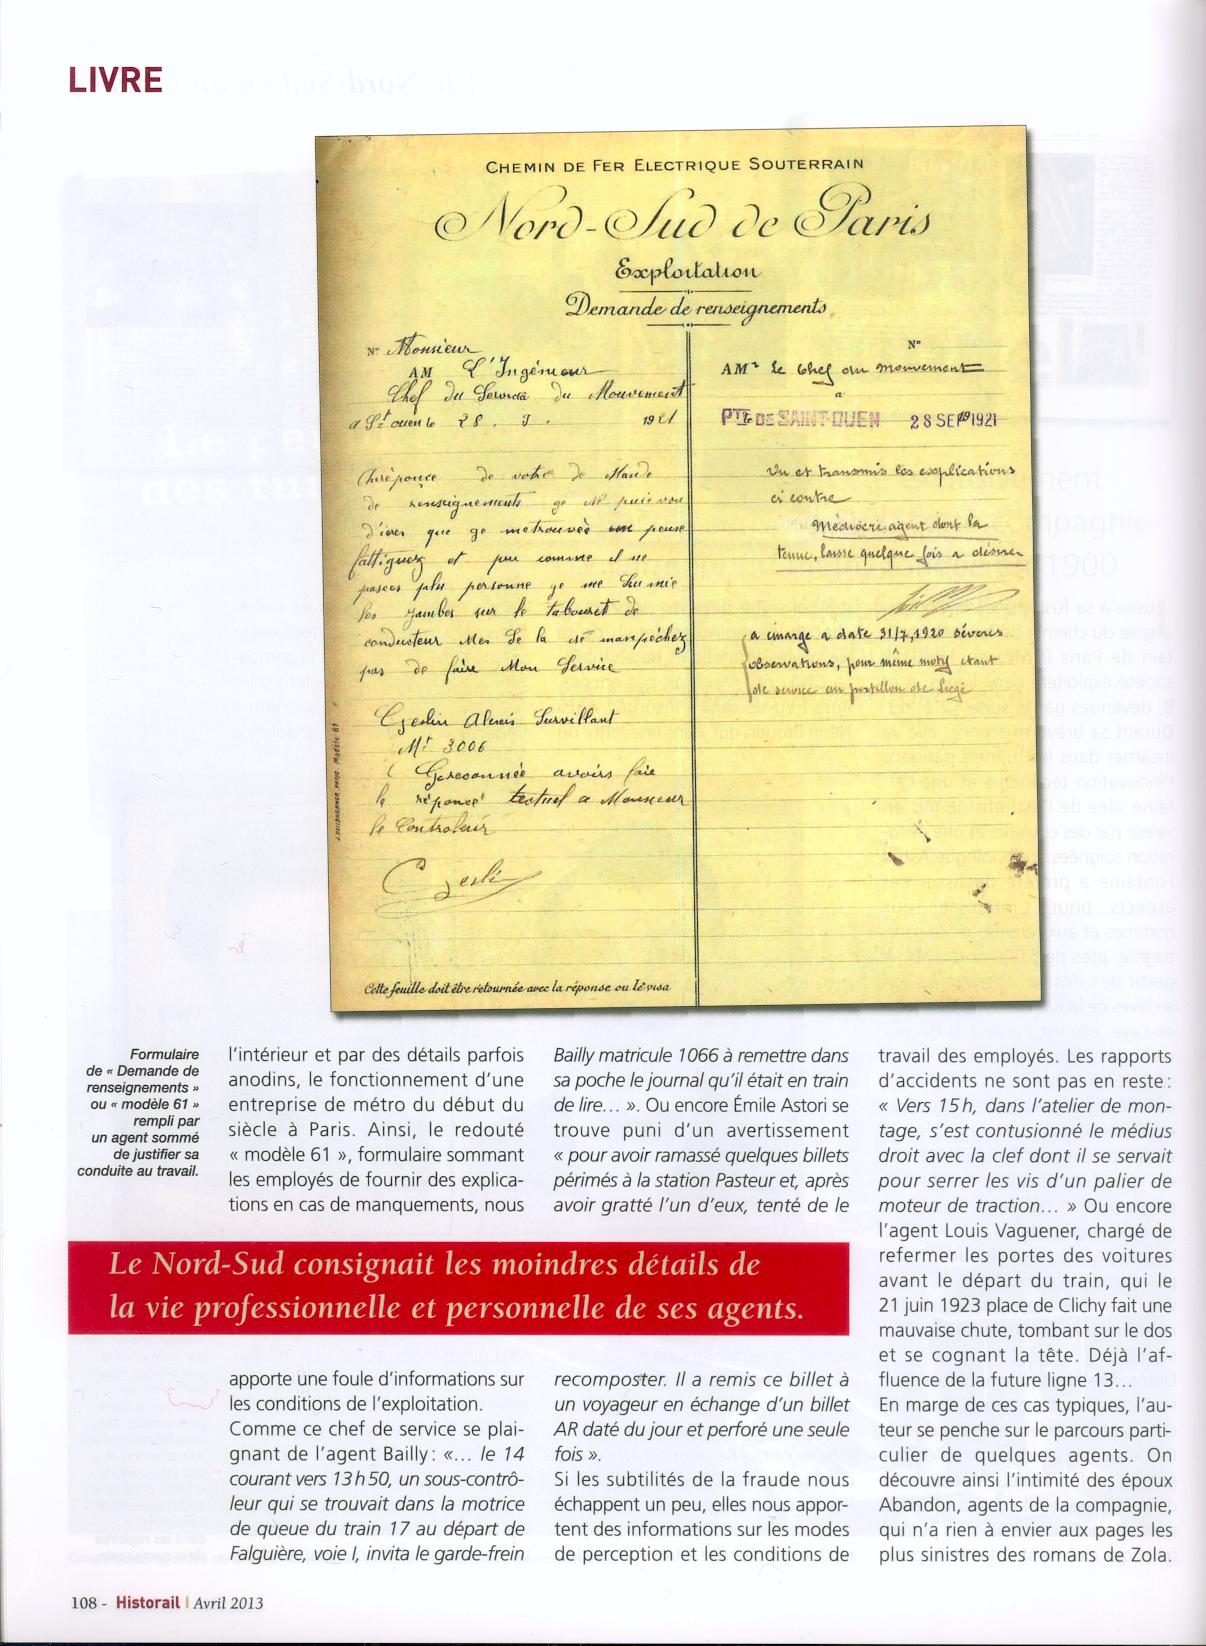 LIVRE
CHEMIN DE FER ELECTRIQUE SOUTERRAIN
Nord-Sud de Paris
Exploitation
Demande de renseignements
N° Monsieur
AM L'Ingénieur
Chef du Service du Mouvement
a St ouen le 28. 9. 1921
de votre de Mande
de renseignements ge ne puis vou
d'ires que ge me trouvée peuse
fattiguez et peu comme il ne
posees plu personne ge me
les jambes sur le tabouret de
conducteur Mes Se la ne manpéchez
pas de faire Mon Service
Geslin Alexis Survillant
Mt 3006
Gereconnée avoirs faie
le réponce textuel a Monsieur
le Controleur
Geslin
Cette feuille doit être retournée avec la réponse ou le visa
N°
AMr Le Chef du mouvement
a
PTTE DE SAINT-OUEN 28 SEP 1921
Vu et transmis les explications
ci contre
Médiocre agent dont la
tenue, laisse quelque fois a désirer
a émargé a date 31/7, 1920 sévères
observations, pour même motif étant
de service au portillon de Liège
Formulaire
de « Demande de
renseignements »
ou « modèle 61 »
rempli par
un agent sommé
de justifier sa
conduite au travail.
l'intérieur et par des détails parfois
anodins, le fonctionnement d'une
entreprise de métro du début du
siècle à Paris. Ainsi, le redouté
« modèle 61 », formulaire sommant
les employés de fournir des explica-
tions en cas de manquements, nous
Le Nord-Sud consignait les moindres détails de
la vie professionnelle et personnelle de ses agents.
apporte une foule d'informations sur
les conditions de l'exploitation.
Comme ce chef de service se plai-
gnant de l'agent Bailly : «… le 14
courant vers 13 h 50, un sous-contrô-
leur qui se trouvait dans la motrice
de queue du train 17 au départ de
Falguière, voie I, invita le garde-frein
Bailly matricule 1066 à remettre dans
sa poche le journal qu'il était en train
de lire… ». Ou encore Émile Astori se
trouve puni d'un avertissement
« pour avoir ramassé quelques billets
périmés à la station Pasteur et, après
avoir gratté l'un d'eux, tenté de le
recomposter. Il a remis ce billet à
un voyageur en échange d'un billet
AR daté du jour et perforé une seule
fois ».
Si les subtilités de la fraude nous
échappent un peu, elles nous appor-
tent des informations sur les modes
de perception et les conditions de
travail des employés. Les rapports
d'accidents ne sont pas en reste :
« Vers 15 h, dans l'atelier de mon-
tage, s'est contusionné le médius
droit avec la clef dont il se servait
pour serrer les vis d'un palier de
moteur de traction… » Ou encore
l'agent Louis Vaguener, chargé de
refermer les portes des voitures
avant le départ du train, qui le
21 juin 1923 place de Clichy fait une
mauvaise chute, tombant sur le dos
et se cognant la tête. Déjà l'af-
fluence de la future ligne 13…
En marge de ces cas typiques, l'au-
teur se penche sur le parcours parti-
culier de quelques agents. On
découvre ainsi l'intimité des époux
Abandon, agents de la compagnie,
qui n'a rien à envier aux pages les
plus sinistres des romans de Zola.
108 - Historail | Avril 2013